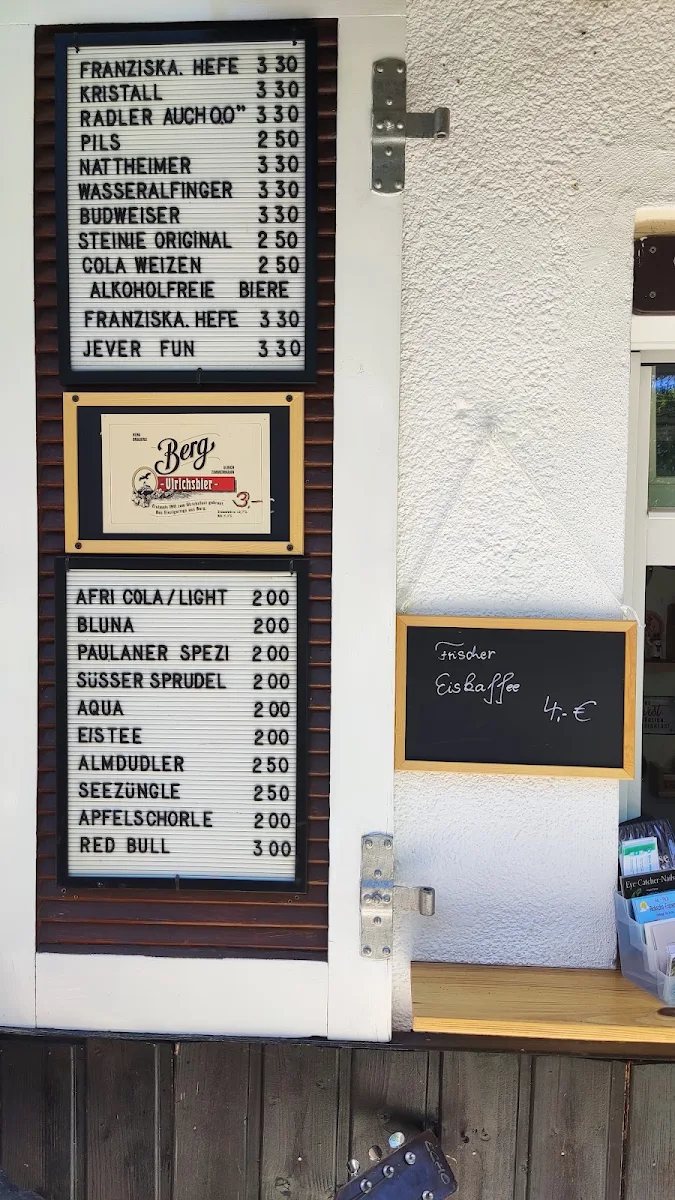 FRANZISKA. HEFE 3 30
KRISTALL 3 30
RADLER AUCH 0,0" 3 30
PILS 2 50
NATTHEIMER 3 30
WASSERALFINGER 3 30
BUDWEISER 3 30
STEINIE ORIGINAL 2 50
COLA WEIZEN 2 50
ALKOHOLFREIE BIERE
FRANZISKA. HEFE 3 30
JEVER FUN 3 30
Berg
-Ulrichsbier-
3,-
AFRI COLA/LIGHT 2 00
BLUNA 2 00
PAULANER SPEZI 2 00
SÜSSER SPRUDEL 2 00
AQUA 2 00
EISTEE 2 00
ALMDUDLER 2 50
SEEZÜNGLE 2 50
APFELSCHORLE 2 00
RED BULL 3 00
Frischer
Eiskaffee
4,- €
Eye-Catcher-Nails